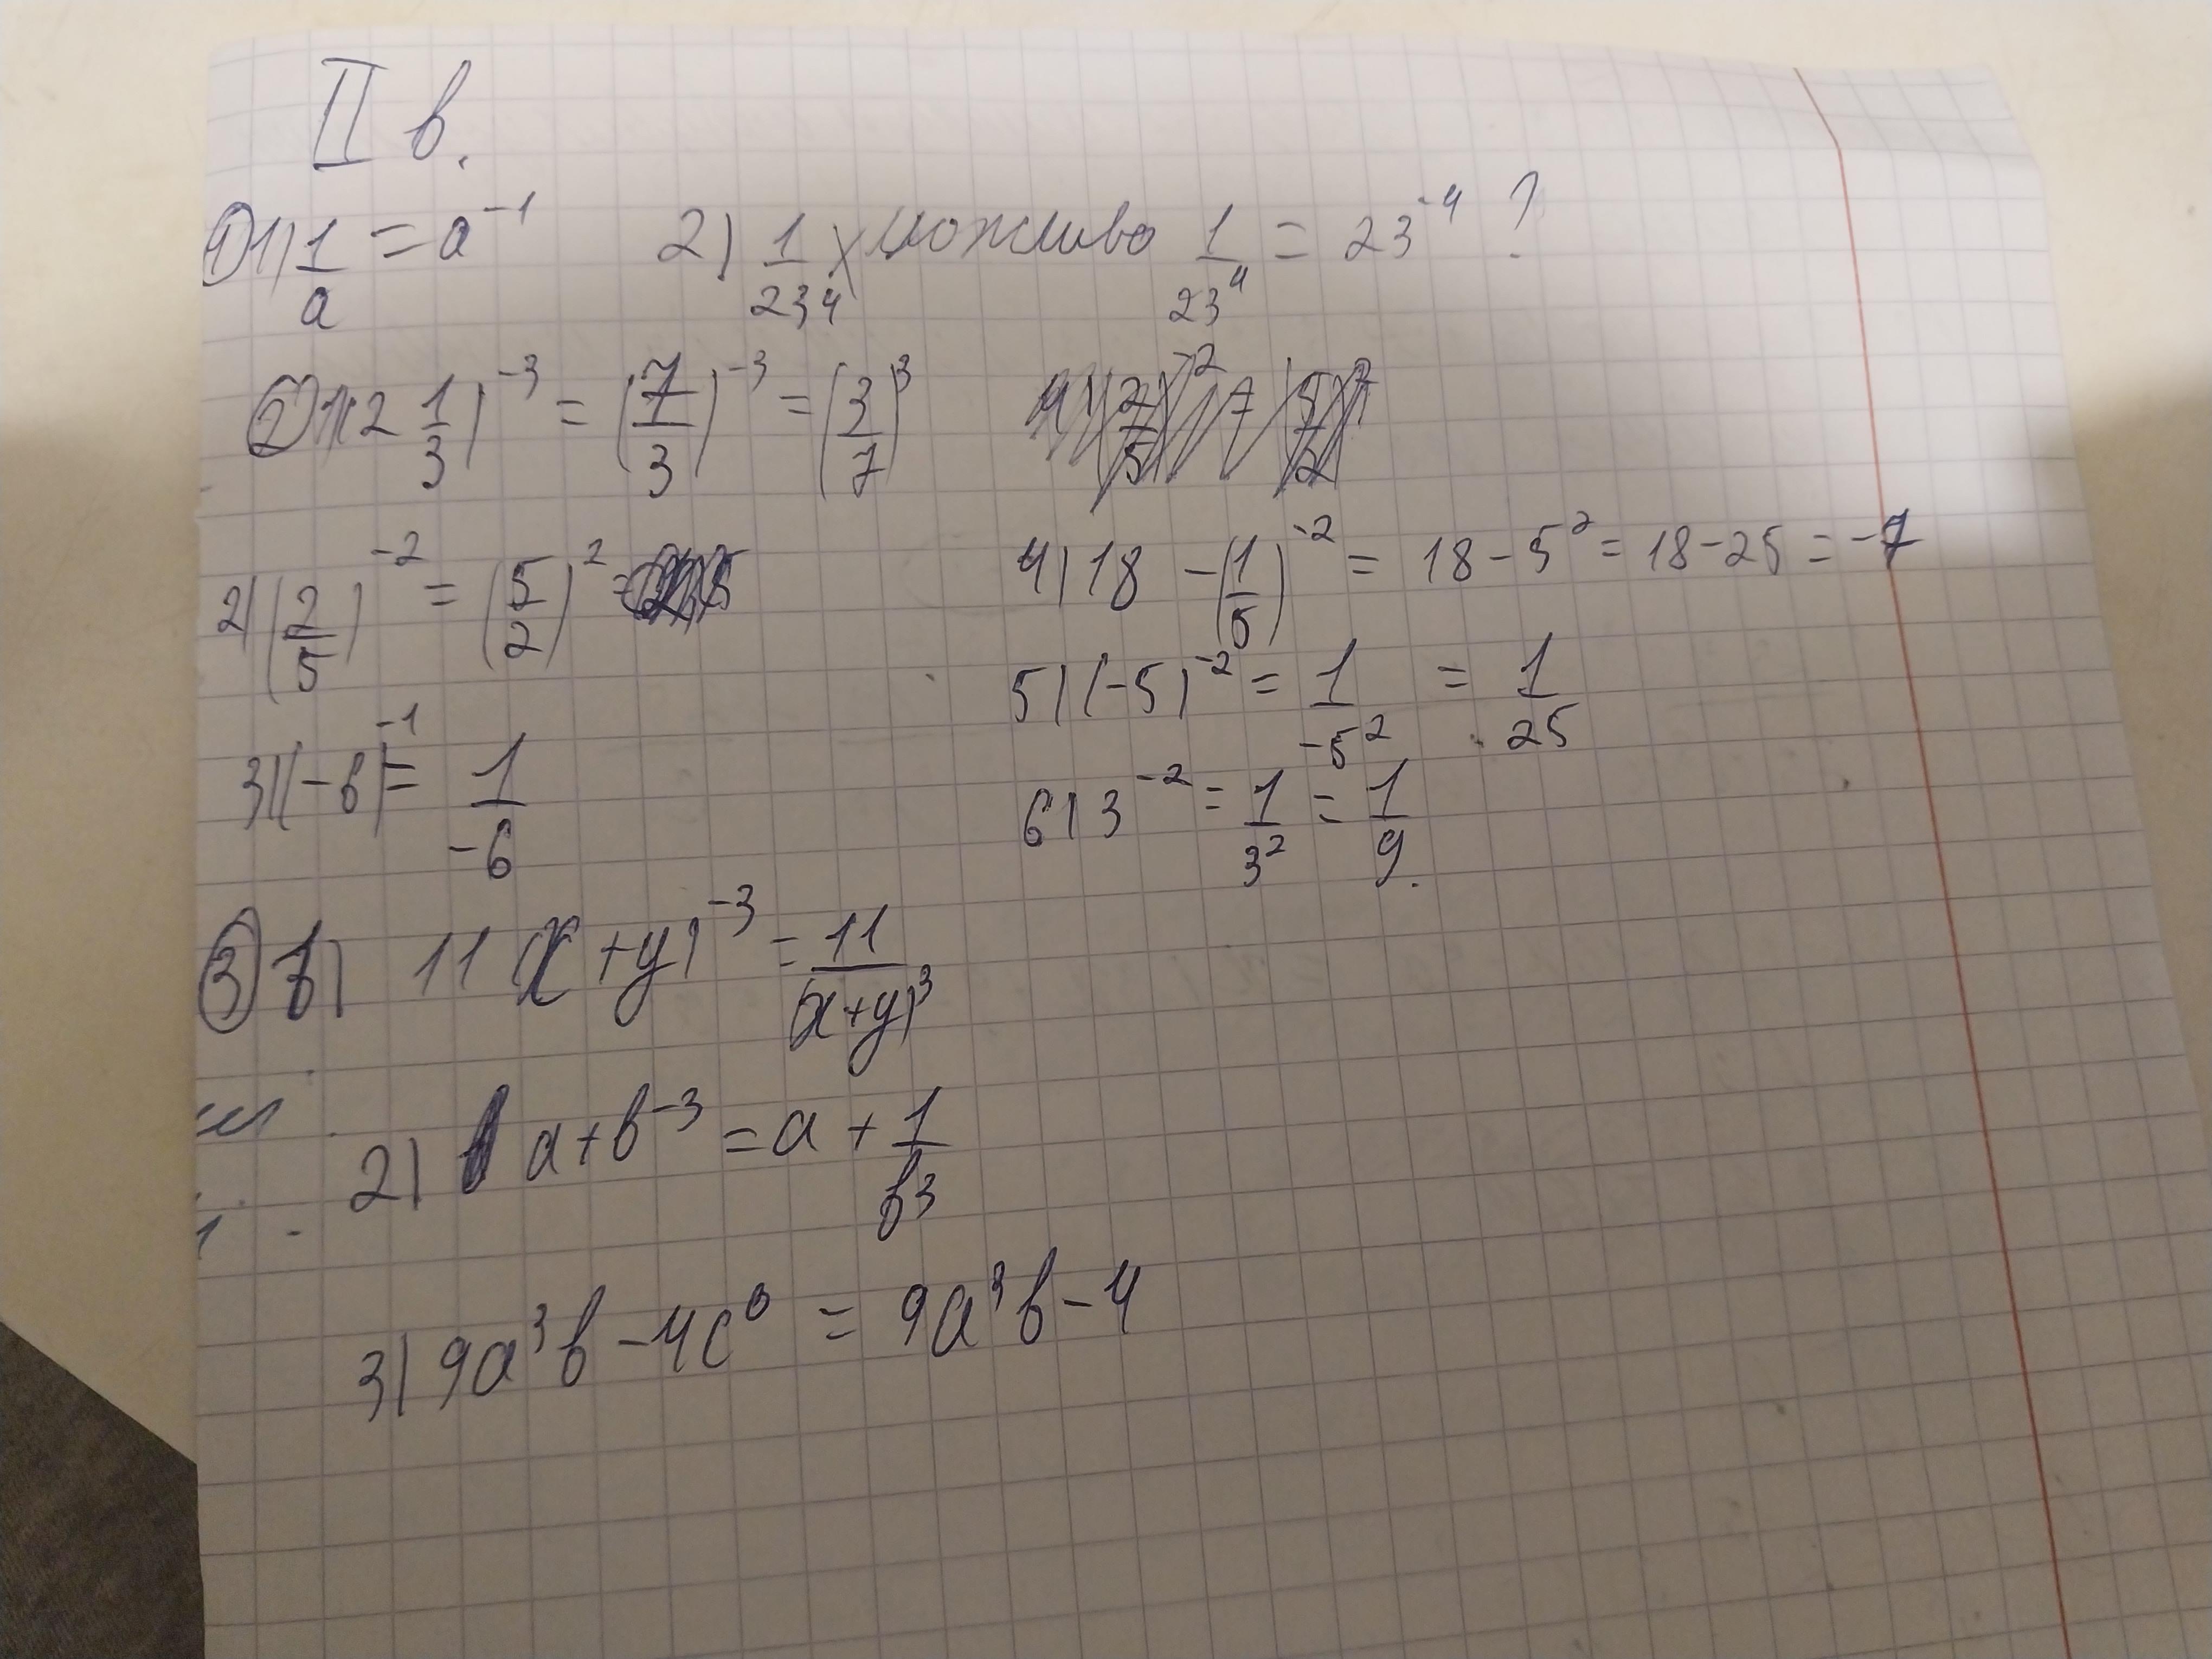 II в.
① 1) 1/a = a⁻¹ 2) 1/234 х можливо 1/23⁴ = 23⁻⁴ ?
② 1) (2 1/3)⁻³ = (7/3)⁻³ = (3/7)³
2) (2/5)⁻² = (5/2)²
3) (-6)⁻¹ = 1/-6
4) 18 - (1/5)⁻² = 18 - 5² = 18 - 25 = -7
5) (-5)⁻² = 1/-5² = 1/25
6) 3⁻² = 1/3² = 1/9.
③ 1) 11 (x+y)⁻³ = 11/(x+y)³
2) a+b⁻³ = a + 1/b³
3) 9a³b - 4c⁰ = 9a³b - 4